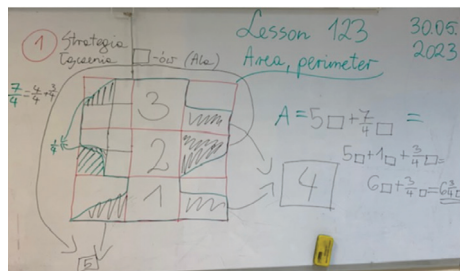 1 Strategia
łączenia □-ów (Ala)
Lesson 123
Area, perimeter
30.05.
2023
7/4 = 4/4 + 3/4
3
2
1
4
5
A = 5□ + 7/4□ =
5□ + 1□ + 3/4□ =
6□ + 3/4□ = 6 3/4□